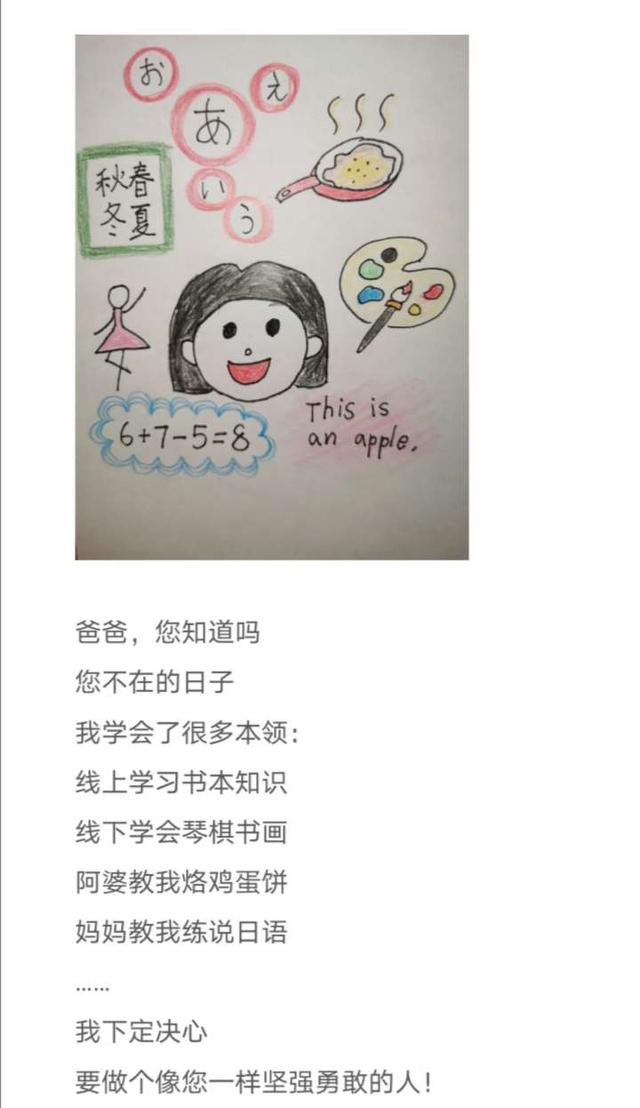 お
え
あ
い
う
秋春
冬夏
6+7-5=8
This is
an apple.
爸爸，您知道吗
您不在的日子
我学会了很多本领：
线上学习书本知识
线下学会琴棋书画
阿婆教我烙鸡蛋饼
妈妈教我练说日语
……
我下定决心
要做个像您一样坚强勇敢的人！